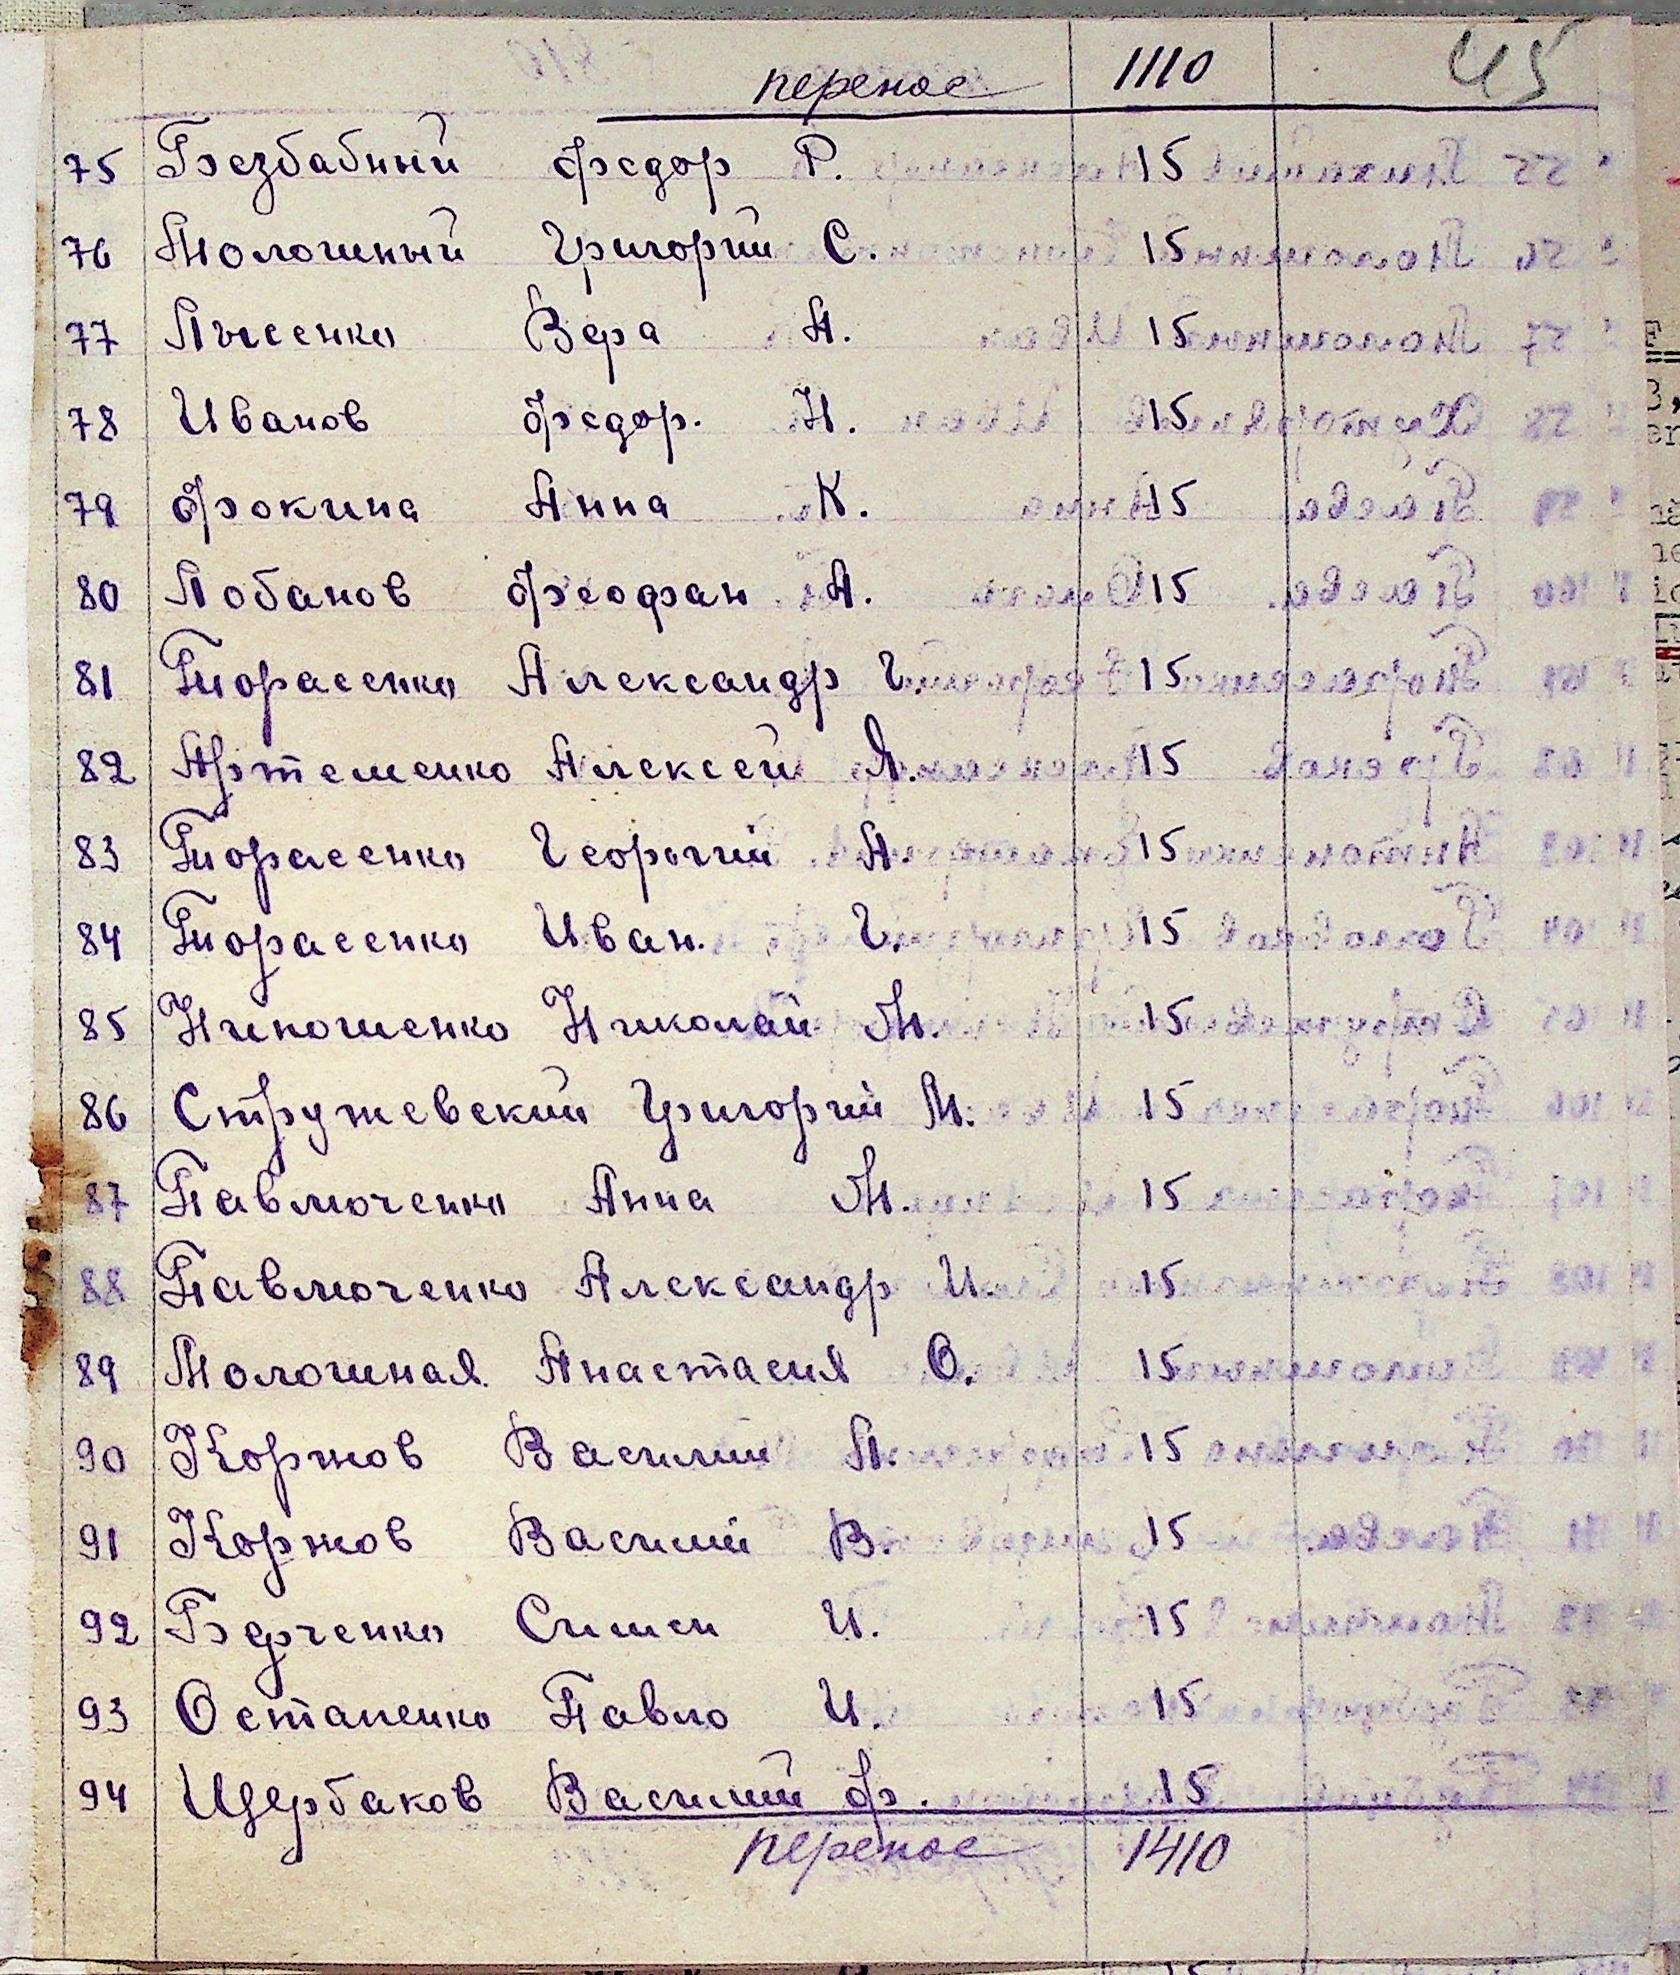 45
перенос 1110
75 Безбабный Федор Р. 15
76 Молошный Григорий С. 15
77 Лысенко Вера А. 15
78 Иванов Федор. Н. 15
79 Фокина Анна К. 15
80 Лобанов Феофан А. 15
81 Тюрасенко Александр Г. 15
82 Артеменко Алексей Я. 15
83 Тюрасенко Георгий А. 15
84 Тюрасенко Иван. Г. 15
85 Николай М. 15
86 Стружевский Григорий М. 15
87 Павлюченко Анна М. 15
88 Павлюченко Александр И. 15
89 Молошная Анастасия О. 15
90 Коржов Василий А. 15
91 Коржов Василий В. 15
92 Симен И. 15
93 Остапенко Павло И. 15
94 Щербаков Василий Ф. 15
перенос 1410